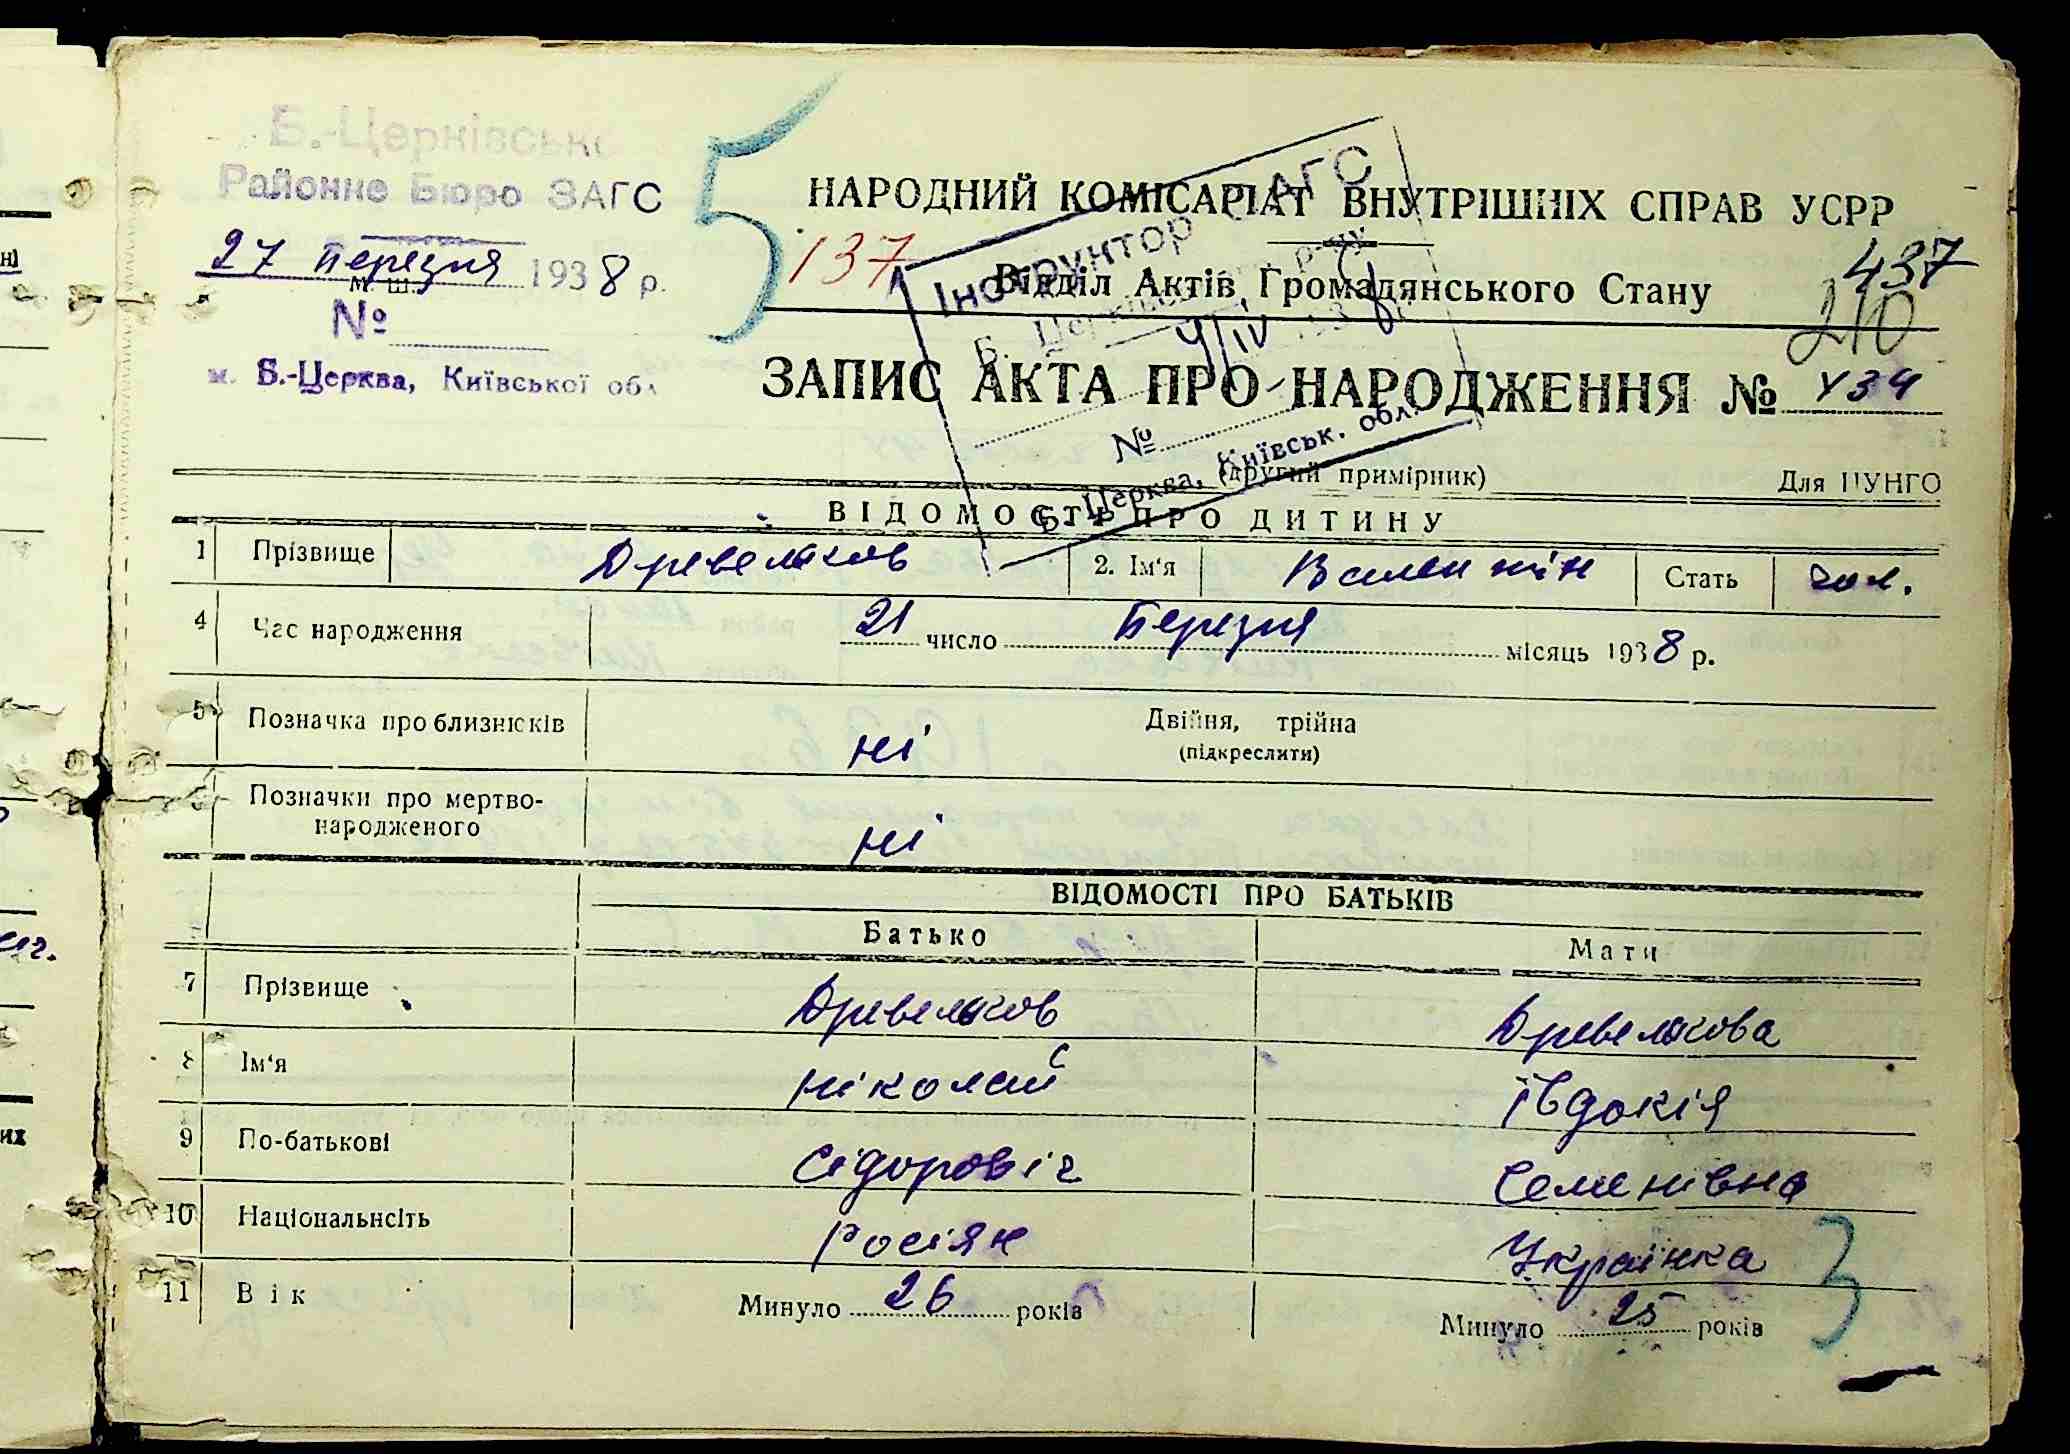 Б.-Церківськ
Районне Бюро ЗАГС
27 Березня 1938 р.
м. ш.
№
м. Б.-Церква, Київської обл
5
137
НАРОДНИЙ КОМІСАРІАТ ВНУТРІШНІХ СПРАВ УСРР
Відділ Актів Громадянського Стану
437
210
Інструктор ЗАГС
4/IV
№
Б. Церква, Київськ. обл.
ЗАПИС АКТА ПРО НАРОДЖЕННЯ № 434
(другий примірник)
Для ЦУНГО
ВІДОМОСТІ ПРО ДИТИНУ
1 Прізвище Древеляков 2. Ім'я Валентін Стать чол.
4 Час народження 21 число Березня місяць 1938 р.
5 Позначка про близнюків ні Двійня, трійна
(підкреслити)
6 Позначки про мертво-
народженого ні
ВІДОМОСТІ ПРО БАТЬКІВ
Батько Мати
7 Прізвище Древеляков Древелякова
8 Ім'я Ніколай Євдокія
9 По-батькові Сідоровіч Семенівна
10 Національність Росіян Українка
11 Вік Минуло 26 років Минуло 25 років
3